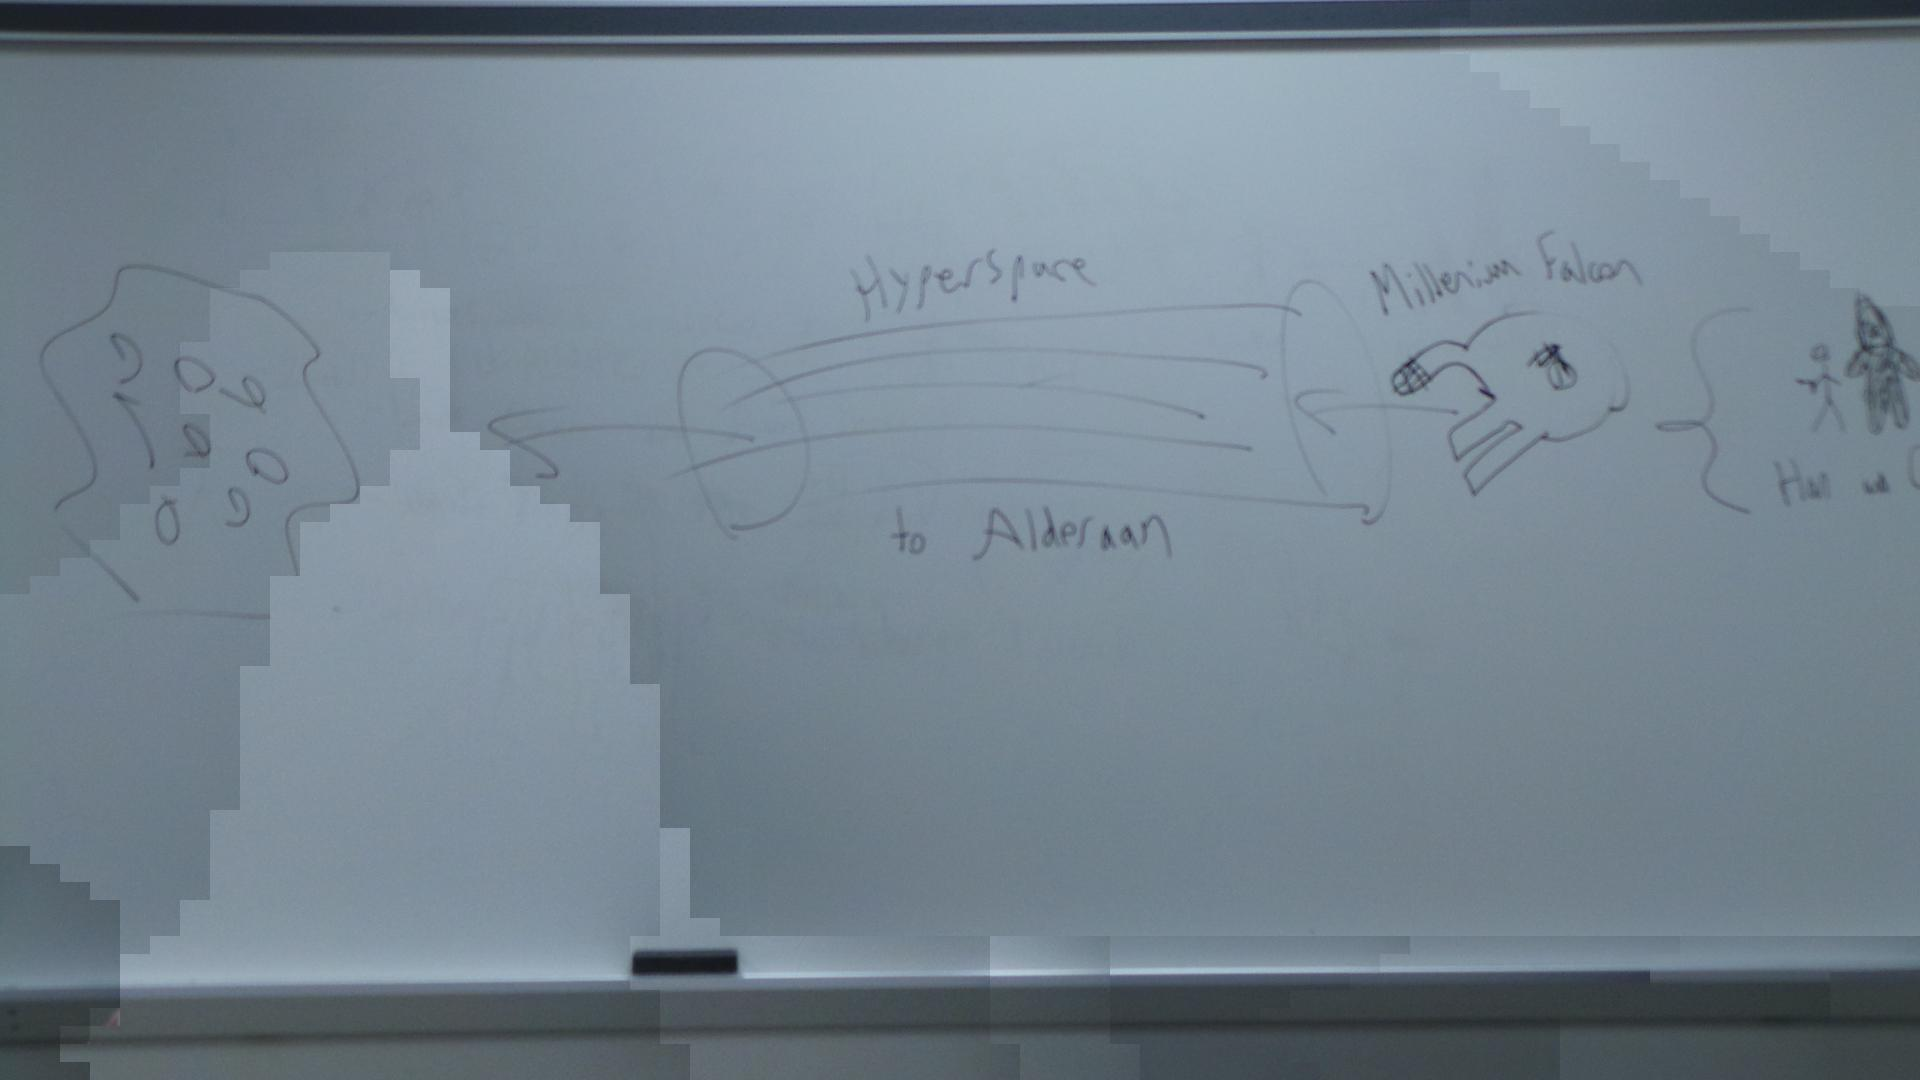 Hyperspace
to Alderaan
Millenium Falcon
Han